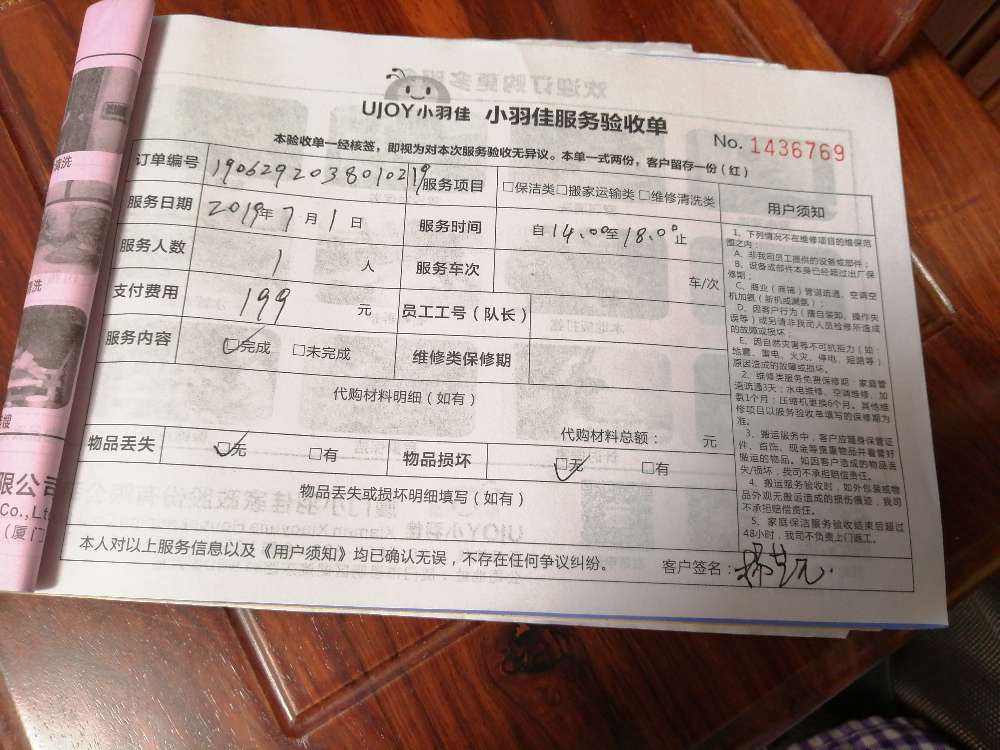 UJOY小羽佳 小羽佳服务验收单
No. 1436769
本验收单一经核签，即视为对本次服务验收无异议。本单一式两份，客户留存一份（红）
订单编号 1906292038010219 服务项目 □保洁类□搬家运输类 □维修清洗类
服务日期 2019年 7月 1日 服务时间 自14.00至18.00止
服务人数 1 人 服务车次 车/次
支付费用 199 元 员工工号（队长）
服务内容 □完成 □未完成 维修类保修期
代购材料明细（如有）
代购材料总额： 元
物品丢失 □无 □有 物品损坏 □无 □有
物品丢失或损坏明细填写（如有）
本人对以上服务信息以及《用户须知》均已确认无误，不存在任何争议纠纷。
客户签名：
用户须知
1、下列情况不在维修项目的维保范
围之内：
A、非我司员工提供的设备或部件；
B、设备或部件本身已经超过出厂保
修期；
C、商业（商铺）管道疏通、空调空
机加氨（新机或漏氨）；
D、因客户行为（擅自装卸、操作失
误等）或另请非我司人员检修所造成
的故障或损坏；
E、因自然灾害等不可抗拒力（如：
地震、雷电、火灾、停电、短路等）
原因造成的故障或损坏。
2、维修类服务免费保修期：家庭管
道疏通3天；水电维修、空调维修、加
氨1个月；压缩机更换6个月。其他维
修项目以服务验收单填写的保修期为
准。
3、搬运服务中，客户应随身保管证
件、首饰、现金等贵重物品并看管好
搬运的物品。如因客户造成的物品丢
失/损坏，我司不承担赔偿责任。
4、搬运服务验收时，如外包装或物
品外观无搬运造成的损伤痕迹，我司
不承担赔偿责任。
5、家庭保洁服务验收结束后超过
48小时，我司不负责上门返工。
清洗
限公司
Co.,Lt
（厦门